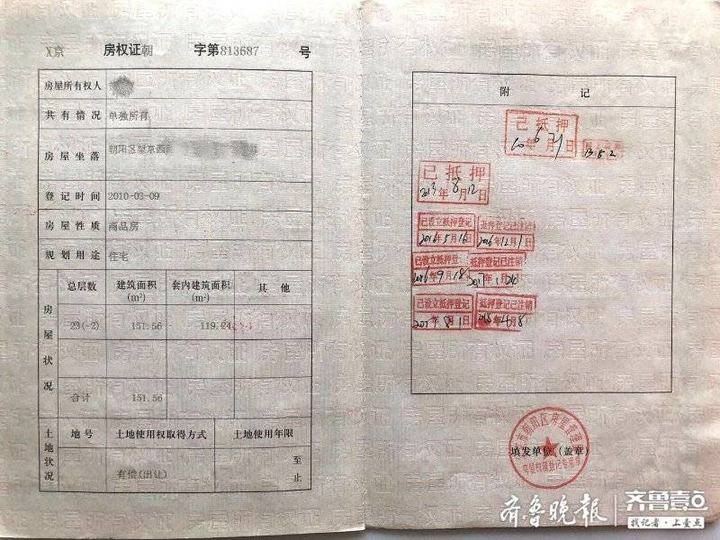 X京 房权证朝 字第813687 号
房屋所有权人
共有情况 单独所有
房屋坐落 朝阳区望京西
登记时间 2010-03-09
房屋性质 商品房
规划用途 住宅
房屋状况
总层数 建筑面积(m²) 套内建筑面积(m²) 其他
23(-2) 151.56 119.24
合计 151.56
土地状况
地号 土地使用权取得方式 土地使用年限
有偿(出让) 至
止
附记
已抵押
已抵押
2013年8月12日
已设立抵押登记 抵押登记已注销
2016年5月16日 2016年12月1日
已设立抵押登记 抵押登记已注销
2016年9月18日 2017年1月20日
已设立抵押登记 抵押登记已注销
2017年8月1日
填发单位(盖章)
齐鲁晚报
齐鲁壹点
找记者·上壹点